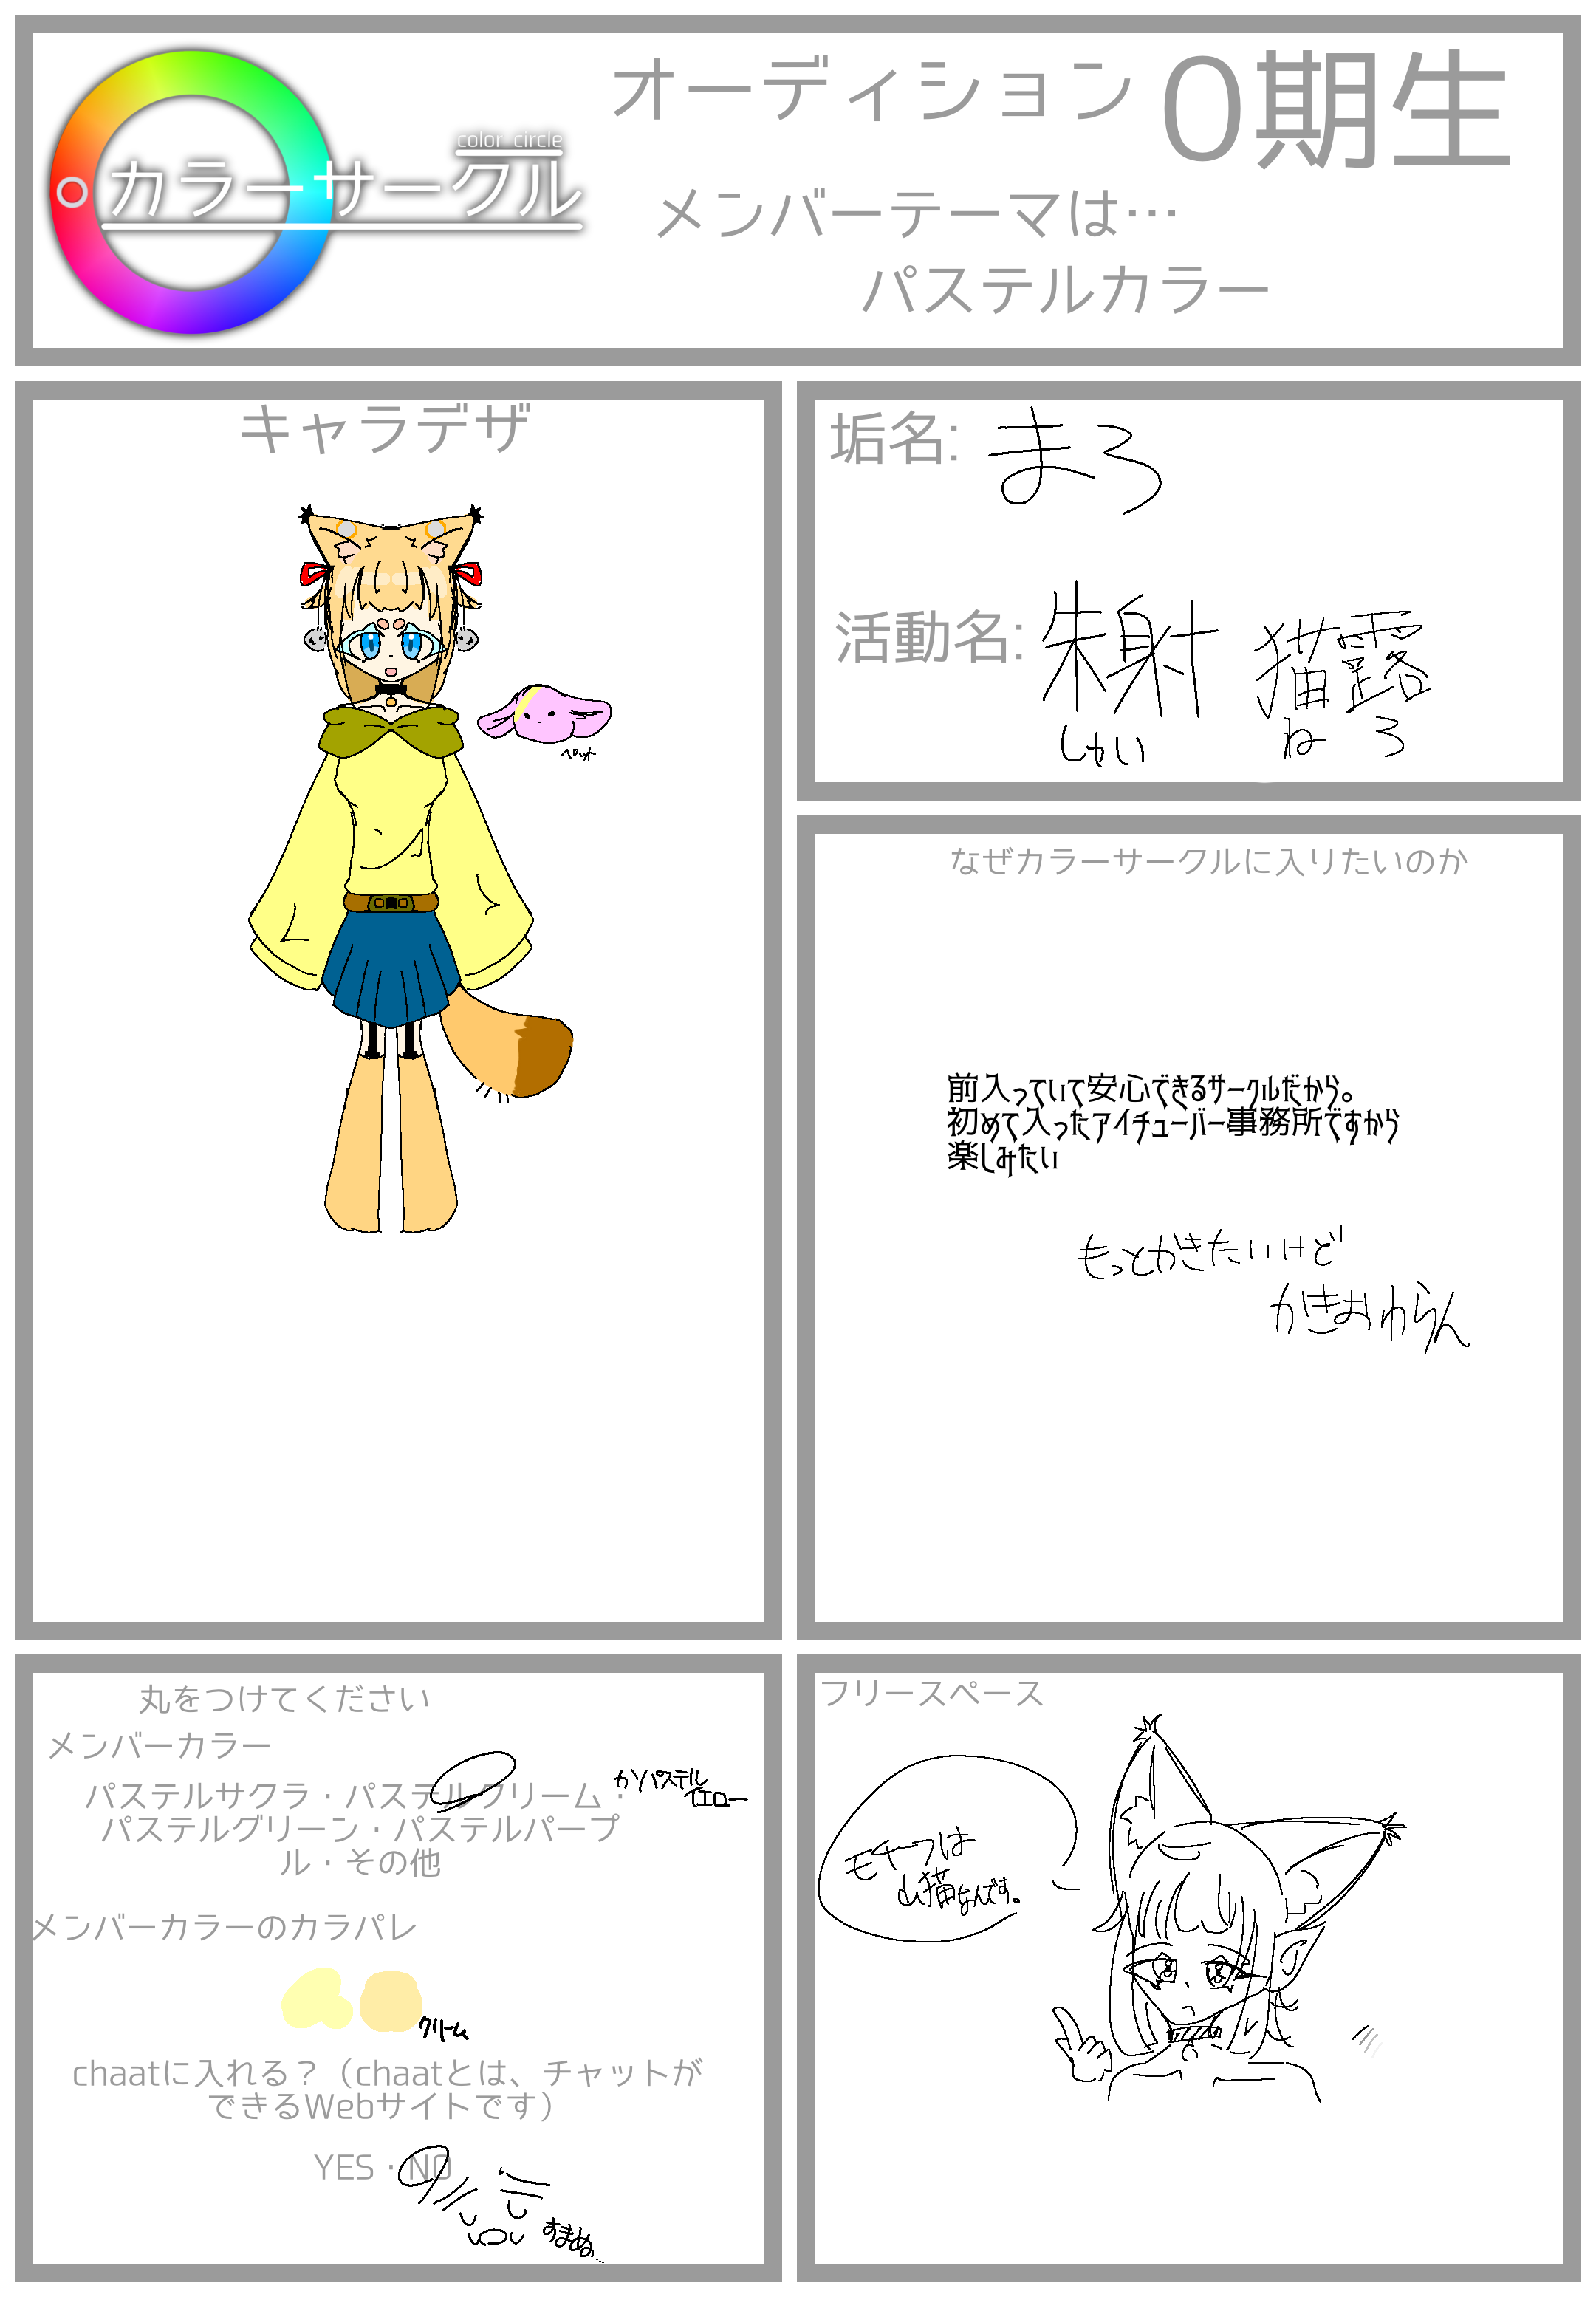 color circle
カラーサークル
オーディション 0期生
メンバーテーマは…
パスーテルカラー
キャラデザ
ペット
垢名: まろ
活動名: 朱射 猫露
しゃい ねろ
なぜカラーサークルに入りたいのか
前入っていて安心できるサークルだから。
初めて入ったアイチューバー事務所ですから
楽しみたい
もっとかきたいけど
かきおわらん
丸をつけてください
メンバーカラー
パステルサクラ・パステルクリーム・
パステルグリーン・パステルパープ
ル・その他
カソパステル
イエロー
メンバーカラーのカラパレ
クリーム
chaatに入れる？（chaatとは、チャットが
できるWebサイトです）
YES・NO
すまぬ…
フリースペース
モチーフは
山猫なんです。